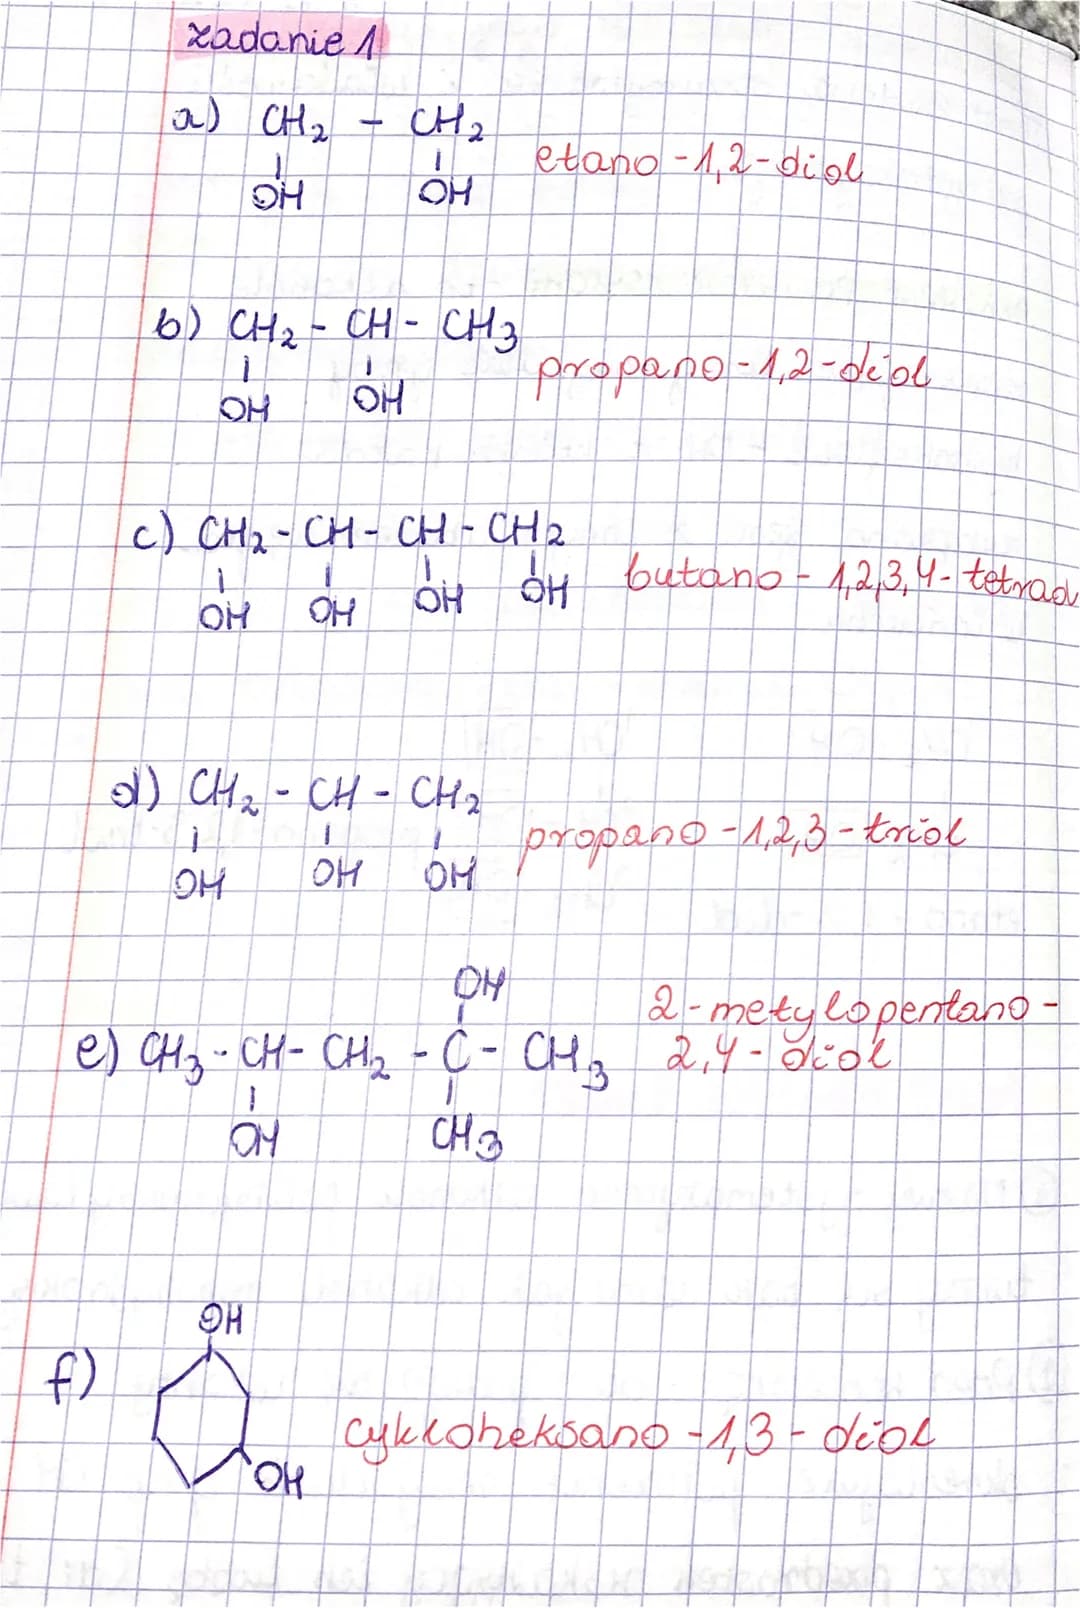 zadanie 1
a) CH₂ - CH₂
OH OH
etano-1,2-diol
b) CH₂ - CH - CH₃
OH OH
propano-1,2-diol
c) CH₂ - CH - CH - CH₂
OH OH OH OH
butano - 1,2,3,4-tetraol
d) CH₂ - CH - CH₂
OH OH OH
propano-1,2,3-triol
OH
e) CH₃ - CH - CH₂ - C - CH₃
OH CH₃
2-metylopentano-
2,4-diol
OH
f)
OH
cykloheksano-1,3-diol